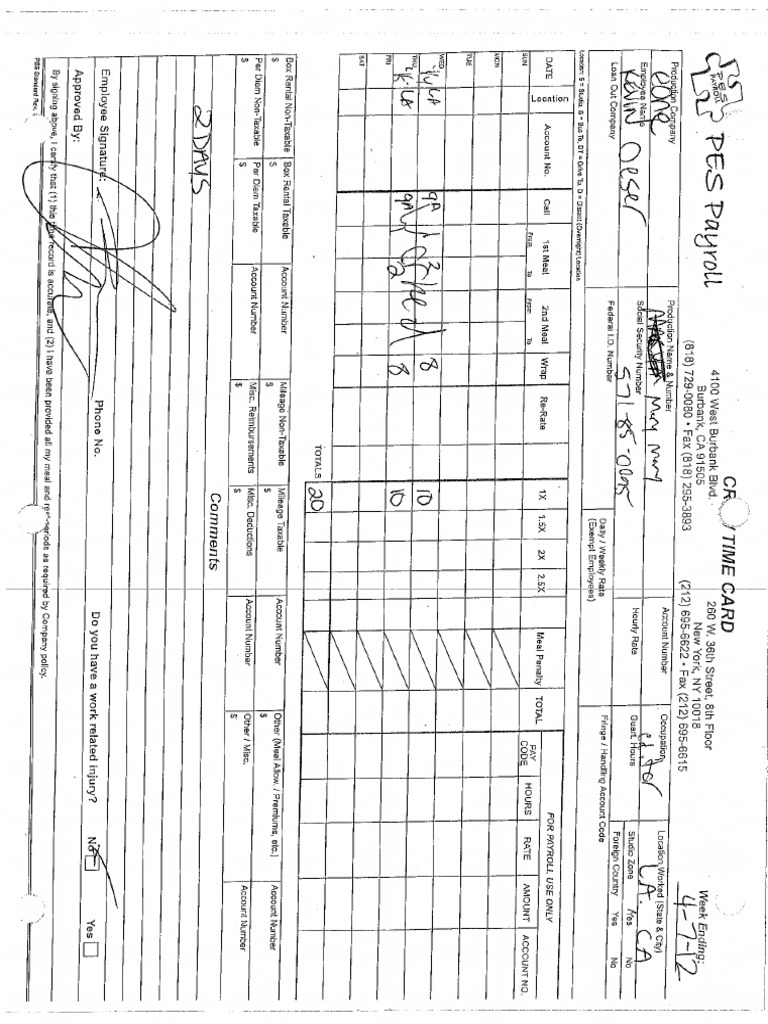 PES PAYROLL
PES Payroll
CR TIME CARD
4100 West Burbank Blvd.
Burbank, CA 91505
(818) 729-0080 • Fax (818) 295-3893
260 W. 36th Street, 8th Floor
New York, NY 10018
(212) 695-6622 • Fax (212) 695-6615
Week Ending:
4-7-12
Production Company
Production Name & Number
Account Number
Occupation
Location Worked (State & City)
editor
LA. CA
Employee Name
Social Security Number
Hourly Rate
Guart. Hours
Studio Zone Yes No
Oeser
Loan Out Company
Federal I.D. Number
Daily / Weekly Rate
(Exempt Employees)
Fringe / Handling Account Code
Foreign Country Yes No
Location: S = Studio, B = Bus To, DT = Drive To, D = Distant (Overnight) Location
FOR PAYROLL USE ONLY
DATE Location Account No. Call 1st Meal From To 2nd Meal From To Wrap Re-Rate 1X 1.5X 2X 2.5X Meal Penalty TOTAL PAY CODE HOURS RATE AMOUNT ACCOUNT NO.
SUN
MON
TUE
WED LA 9A 8 10
THU LA 9A 8 10
FRI
SAT
TOTALS 20
Box Rental Non-Taxable Box Rental Taxable Account Number Mileage Non-Taxable Mileage Taxable Account Number Other (Meal Allow. / Premiums, etc.) Account Number
$ $ $ $ $
Per Diem Non-Taxable Per Diem Taxable Account Number Misc. Reimbursements Misc. Deductions Account Number Other / Misc. Account Number
$ $ $ $ $
Comments
2 DAYS
Employee Signature:
Approved By:
Phone No.
Do you have a work related injury? No Yes
By signing above, I certify that (1) this time record is accurate, and (2) I have been provided all my meal and rest periods as required by Company policy.
PES Standard Rev.